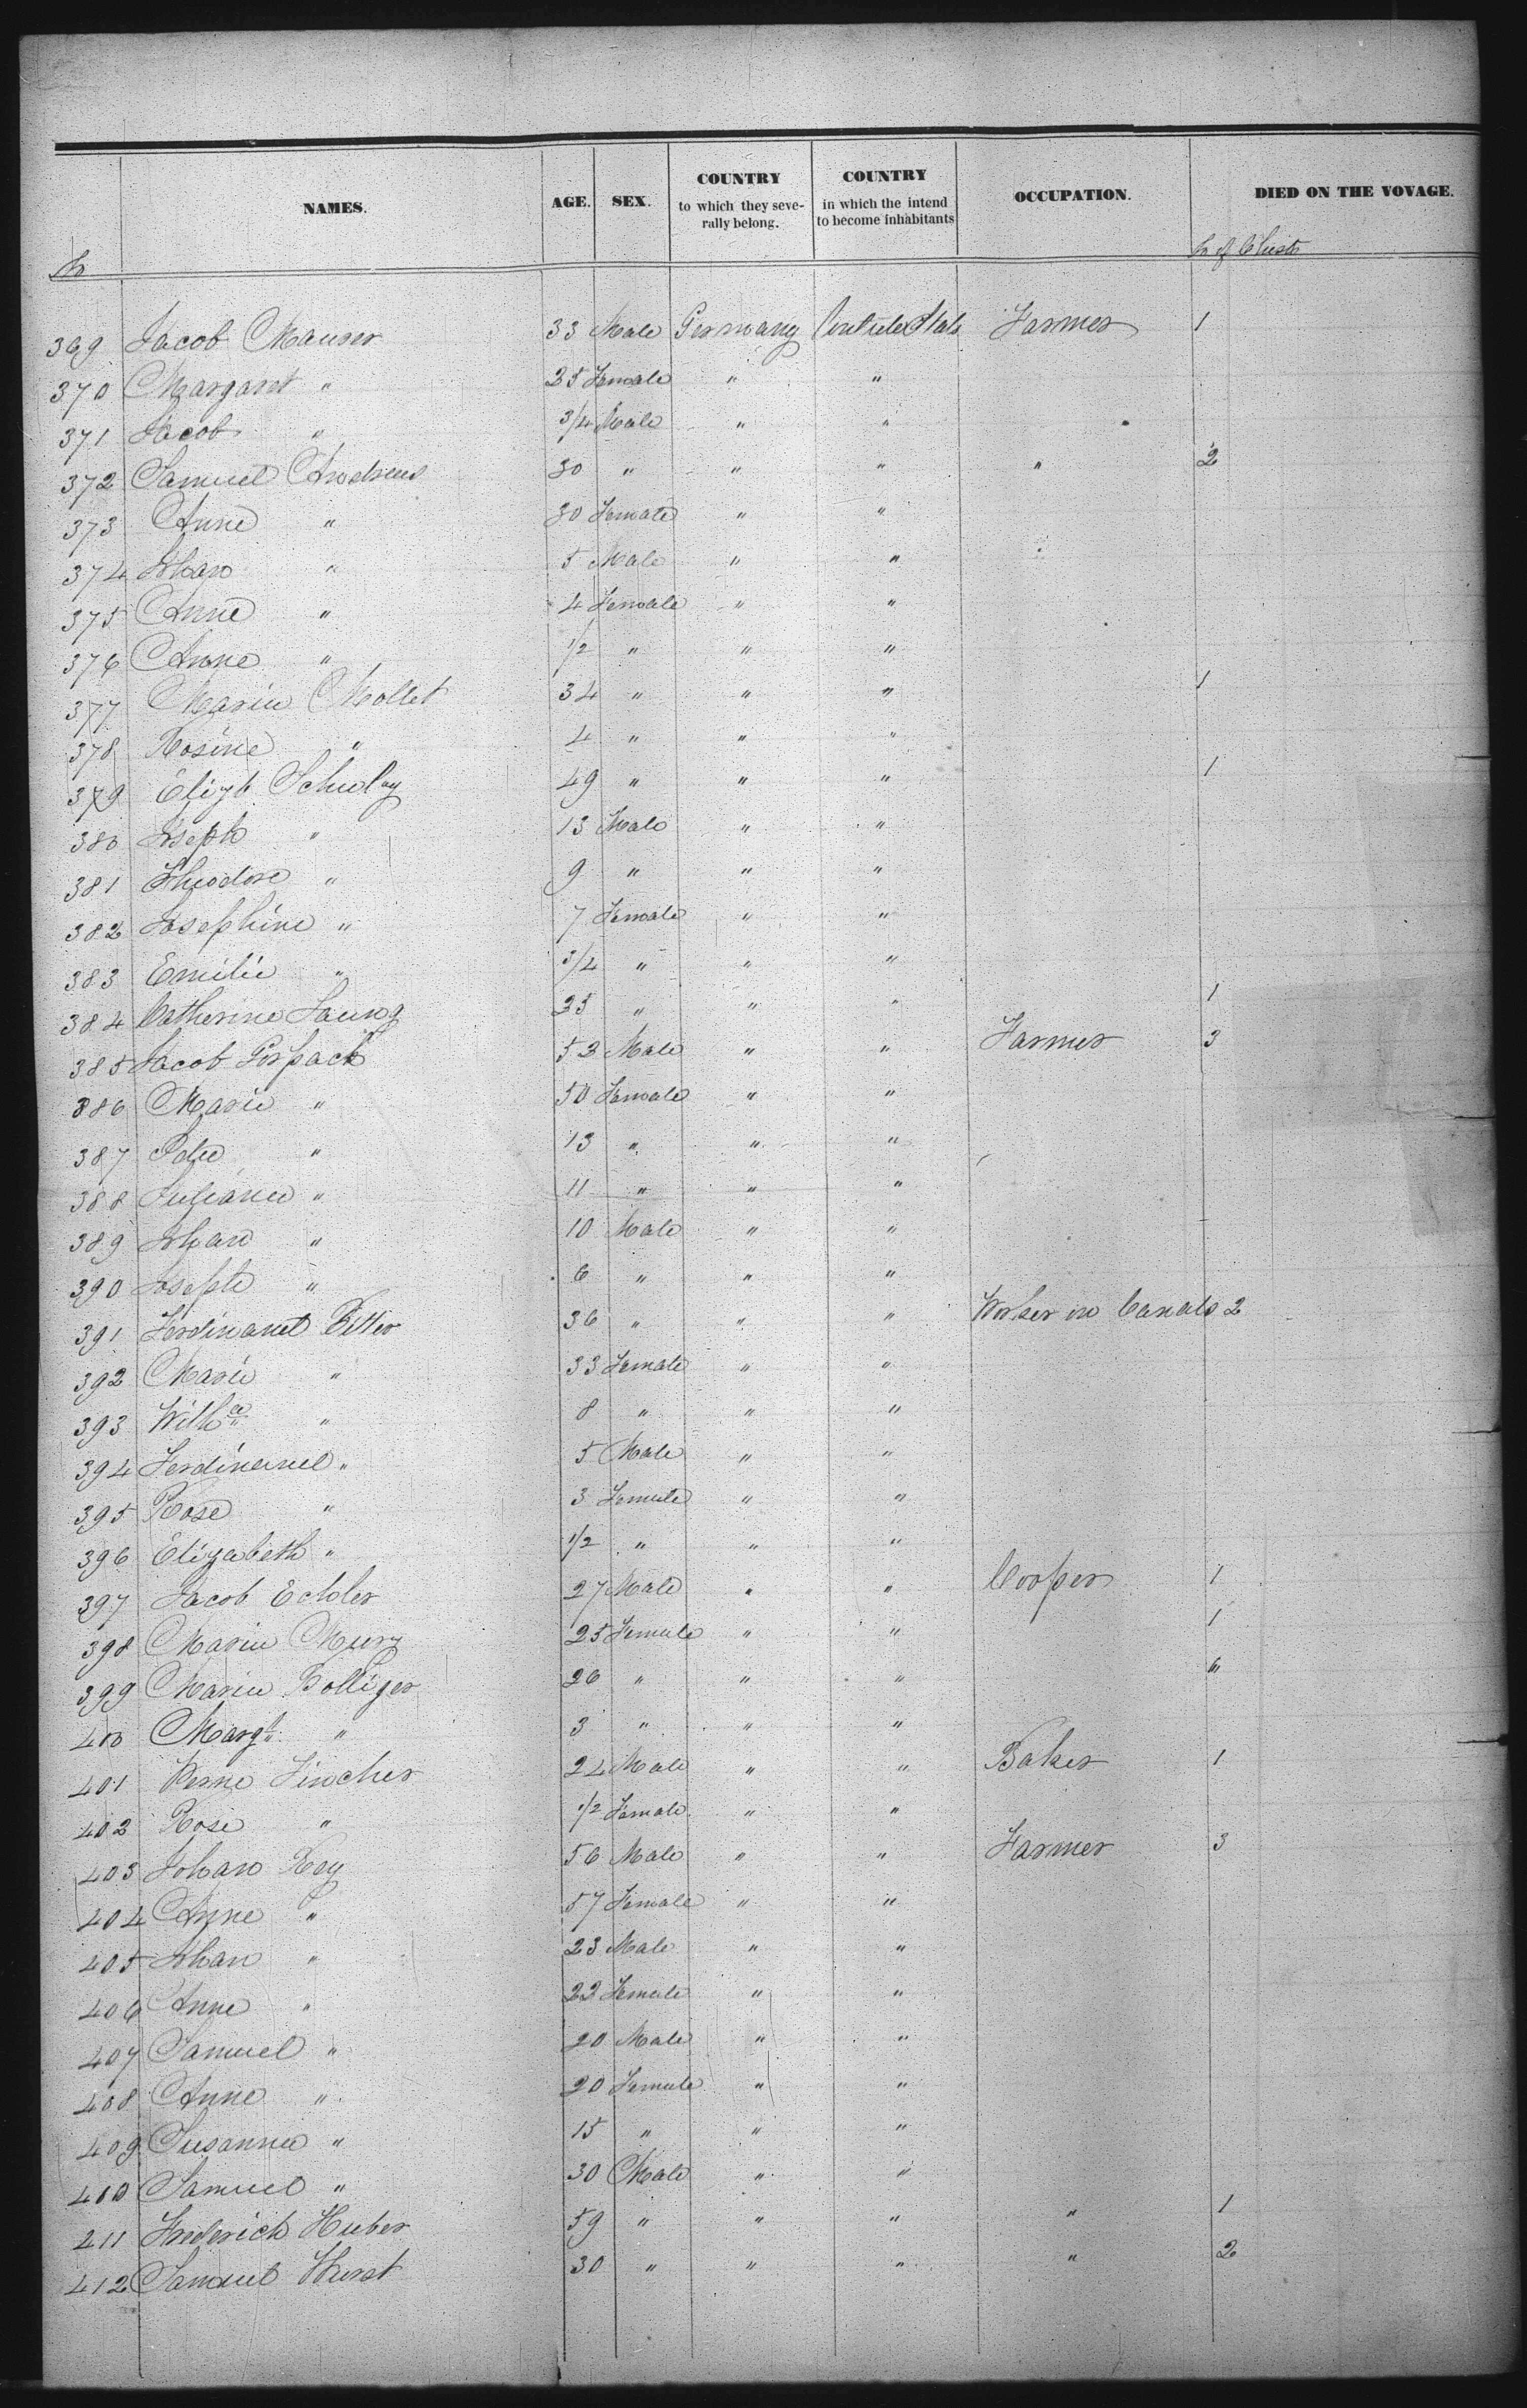 NAMES. AGE. SEX. COUNTRY to which they seve- rally belong. COUNTRY in which the intend to become inhabitants OCCUPATION. DIED ON THE VOVAGE.
No No of Chests
369 Jacob Mauser 33 Male Germany United Stats Farmer 1
370 Margaret " 35 Female " "
371 Jacob " 3/4 Male " "
372 Samuel Andreus 30 " " " " 2
373 Anne " 30 Female " "
374 Johan " 5 Male " "
375 Anne " 4 Female " "
376 Anne " 1/2 " " "
377 Maria Mollet 34 " " " 1
378 Rosine " 4 " " "
379 Elizb. 49 " " " 1
380 Joseph " 13 Male " "
381 Theodore " 9 " " "
382 Josephine " 7 Female " "
383 Emilie " 3/4 " " "
384 Catherine 25 " " " 1
385 Jacob 53 Male " " Farmer 3
386 Marie " 50 Female " "
387 " 13 " " "
388 Juliana " 11 " " "
389 Johan " 10 Male " "
390 Joseph " 6 " " "
391 Ferdinand Bitter 36 " " " Worker in Canals 2
392 Marie " 33 Female " "
393 Willha " 8 " " "
394 Ferdinand " 5 Male " "
395 Rose " 3 Female " "
396 Elizabeth " 1/2 " " "
397 Jacob Echler 27 Male " " Cooper 1
398 Maria Mury 25 Female " " 1
399 Maria Bolliger 26 " " " "
400 Margt " 3 " " "
401 Fincher 24 Male " " Baker 1
402 Rosi " 1/2 Female " "
403 Johan Rey 56 Male " " Farmer 3
404 Anne " 57 Female " "
405 Johan " 23 Male " "
406 Anne " 22 Female " "
407 Samuel " 20 Male " "
408 Anne " 20 Female " "
409 Susanna " 15 " " "
410 Samuel " 30 Male " "
411 Frederich Huber 59 " " " " 1
412 Samuel Hurst 30 " " " " 2